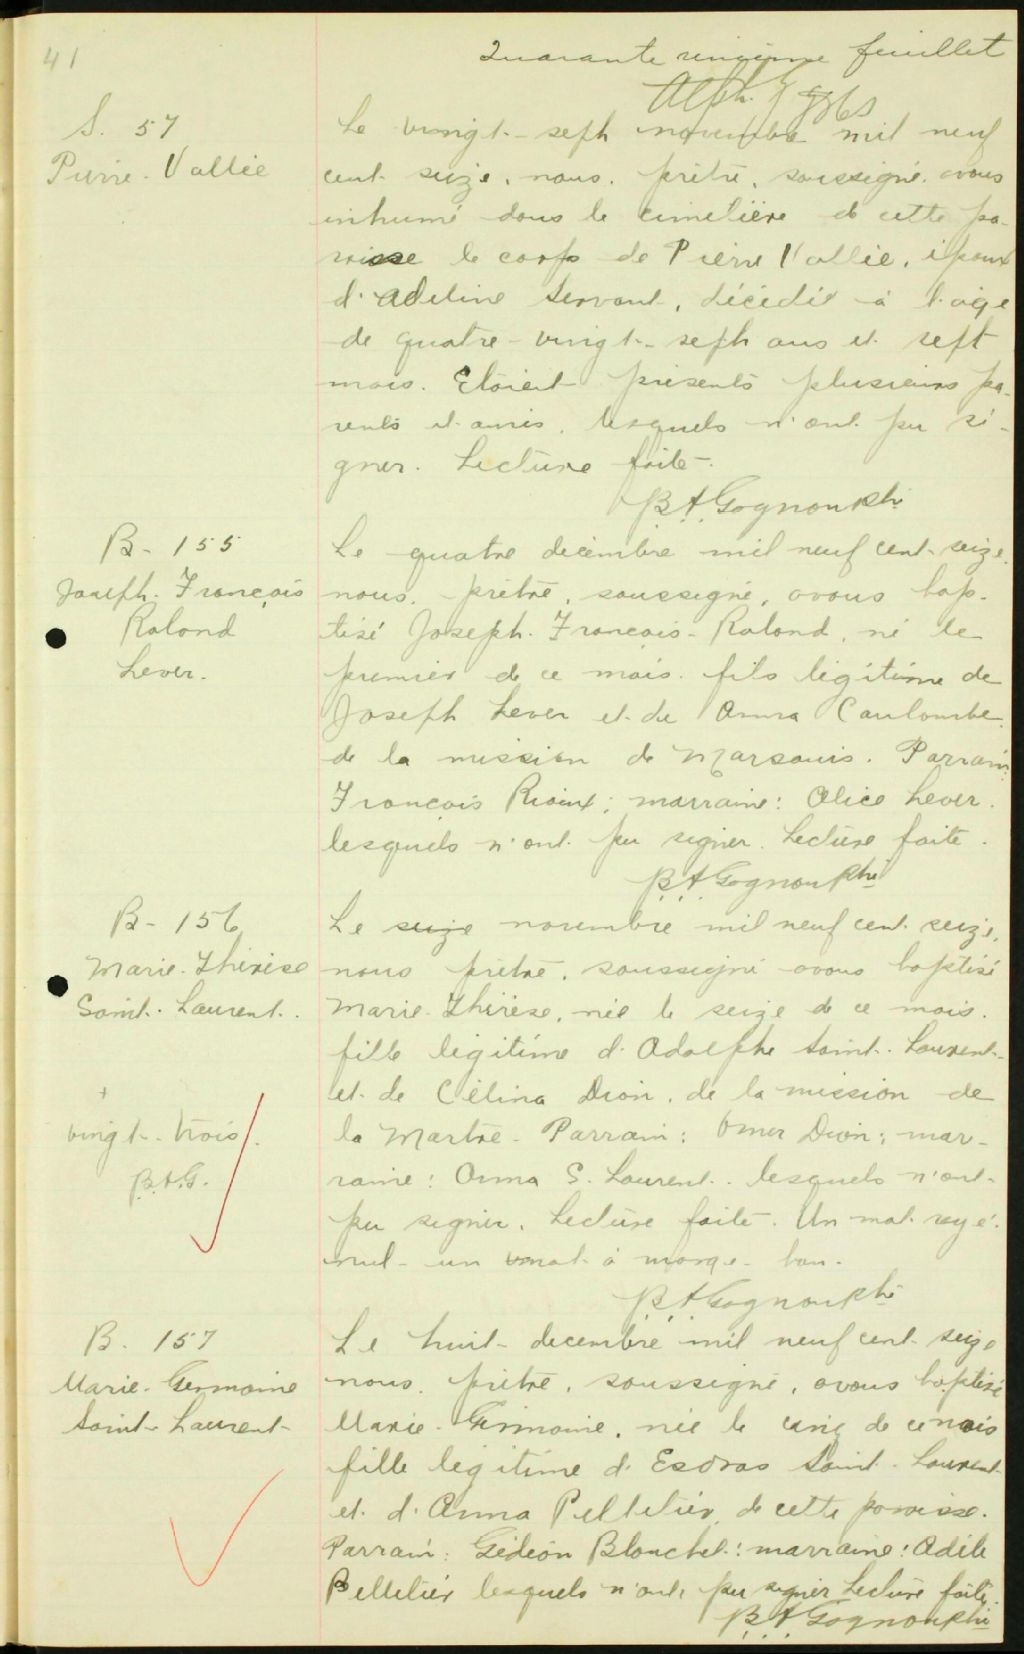 41
Quarante unième feuillet
S. 57
Pierre Vallée
Le vingt-sept novembre mil neuf
cent seize, nous, prêtre, soussigné, avons
inhumé dans le cimetière de cette pa-
roisse le corps de Pierre Vallée, époux
d'Adeline Servant, décédé à l'âge
de quatre-vingt-sept ans et sept
mois. Etaient présents plusieurs pa-
rents et amis, lesquels n'ont pu si-
gner. Lecture faite.
B. A. Gagnon Ptre
B- 155
Joseph-François
Roland
Lever.
Le quatre décembre mil neuf cent-seize,
nous, prêtre, soussigné, avons bap-
tisé Joseph-François-Roland, né le
premier de ce mois, fils légitime de
Joseph Lever et de Anna Coulombe
de la mission de Marsouis. Parrain:
François Rioux; marraine: Alice Lever.
lesquels n'ont pu signer. Lecture faite.
B. A. Gagnon Ptre
B- 156
Marie-Thérèse
Saint-Laurent.
+
vingt-trois.
B.A.G.
Le seize novembre mil neuf cent seize,
nous prêtre, soussigné avons baptisé
Marie-Thérèse, née le seize de ce mois.
fille légitime d'Adolphe Saint-Laurent
et de Célina Dion, de la mission de
la Martre. Parrain: Omer Dion; mar-
raine: Anna S. Laurent. lesquels n'ont
pu signer. Lecture faite. Un mot rayé
nul- un mot à marge- bon.
B. A. Gagnon Ptre
B. 157
Marie-Germaine
Saint-Laurent
Le huit décembre mil neuf cent seize
nous, prêtre, soussigné, avons baptisé
Marie-Germaine, née le cinq de ce mois
fille légitime d'Esdras Saint-Laurent
et d'Anna Pelletier, de cette paroisse.
Parrain: Gédéon Blanchet; marraine: Adèle
Pelletier lesquels n'ont pu signer Lecture faite.
B. A. Gagnon Ptre